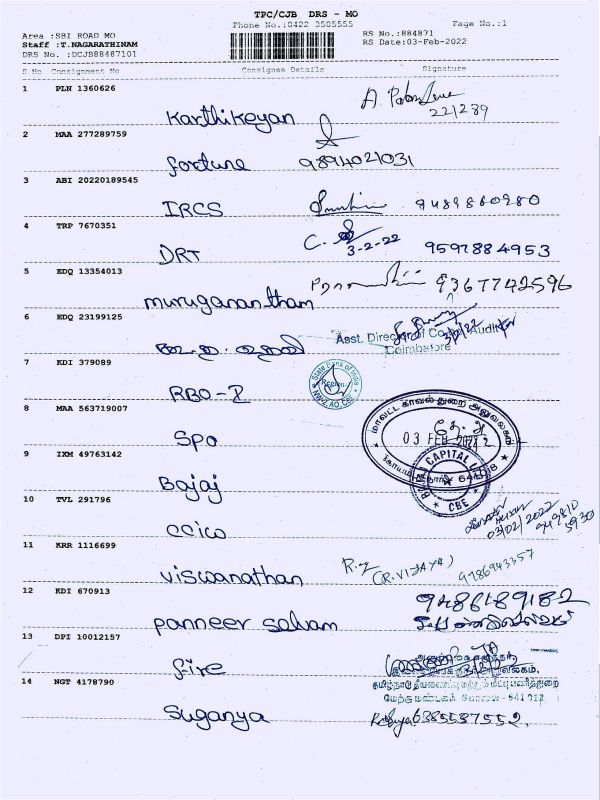 TPC/CJB DRS - MO
Phone No.:0422 3505555
Page No.:1
Area :SBI ROAD MO
RS No.:884871
Staff :T.NAGARATHINAM
RS Date:03-Feb-2022
DRS No. :DCJB88487101
S No Consignment No Consignee Details Signature
1 PLN 1360626
Karthikeyan
221289
2 MAA 277289759
fortune 9894021031
3 ABI 20220189545
IRCS 9489860980
4 TRP 7670351
DRT C. 3-2-22 9597884953
5 EDQ 13354013
muruganantham 9367742596
6 EDQ 23199125
Asst. Director of Audit
Coimbatore
7 KDI 379089
RBO-I
State Bank of India
Region-
8 MAA 563719007
Spo
மாவட்ட காவல் துறை அலுவலகம்
03 FEB 2022
9 IXM 49763142
Bajaj
CAPITAL
CBE
10 TVL 291796
CCICO
03/02/2022
11 KRR 1116699
Viswanathan (R.VIJAYA) 9786943357
12 KDI 670913
Panneer Selvam 9486189182
13 DPI 10012157
fire
14 NGT 4178790
Suganya 6385537552